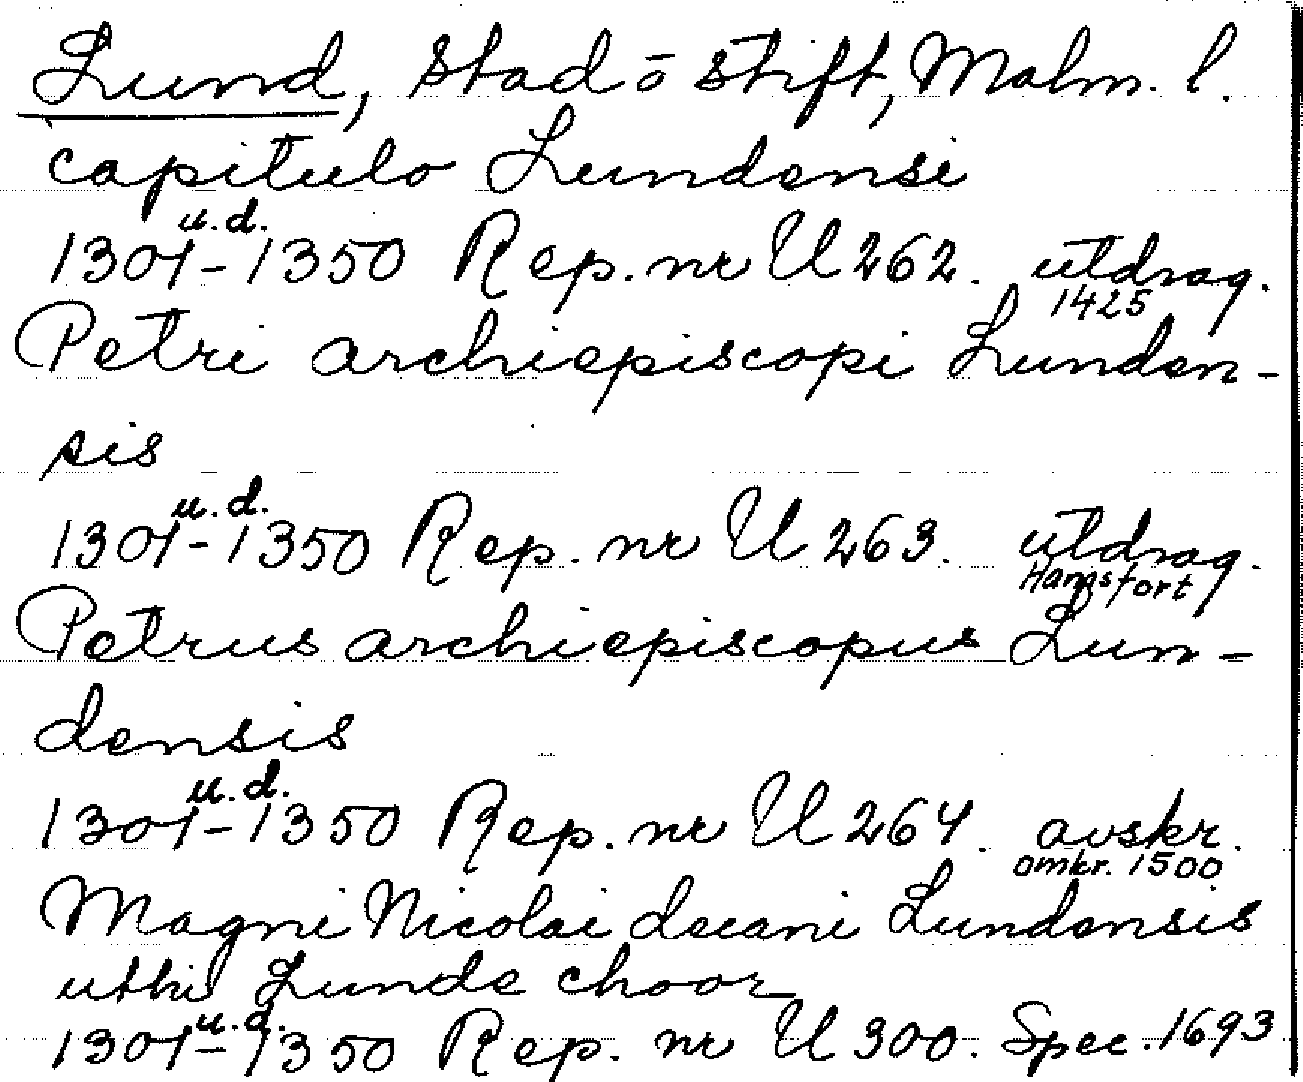 Lund, stad o stift, Malm. l.
capitulo Lundensi
u.d.
1301-1350 Rep. nr U 262. utdrag.
1425
Petri archiepiscopi Lunden-
sis
u.d.
1301-1350 Rep. nr U 263. utdrag.
Hamsfort
Petrus archiepiscopus Lun-
densis
u.d.
1301-1350 Rep. nr U 264. avskr.
omkr. 1500
Magni Nicolai decani Lundensis
uthi Lunde choor
u.d.
1301-1350 Rep. nr U 300. Spec. 1693